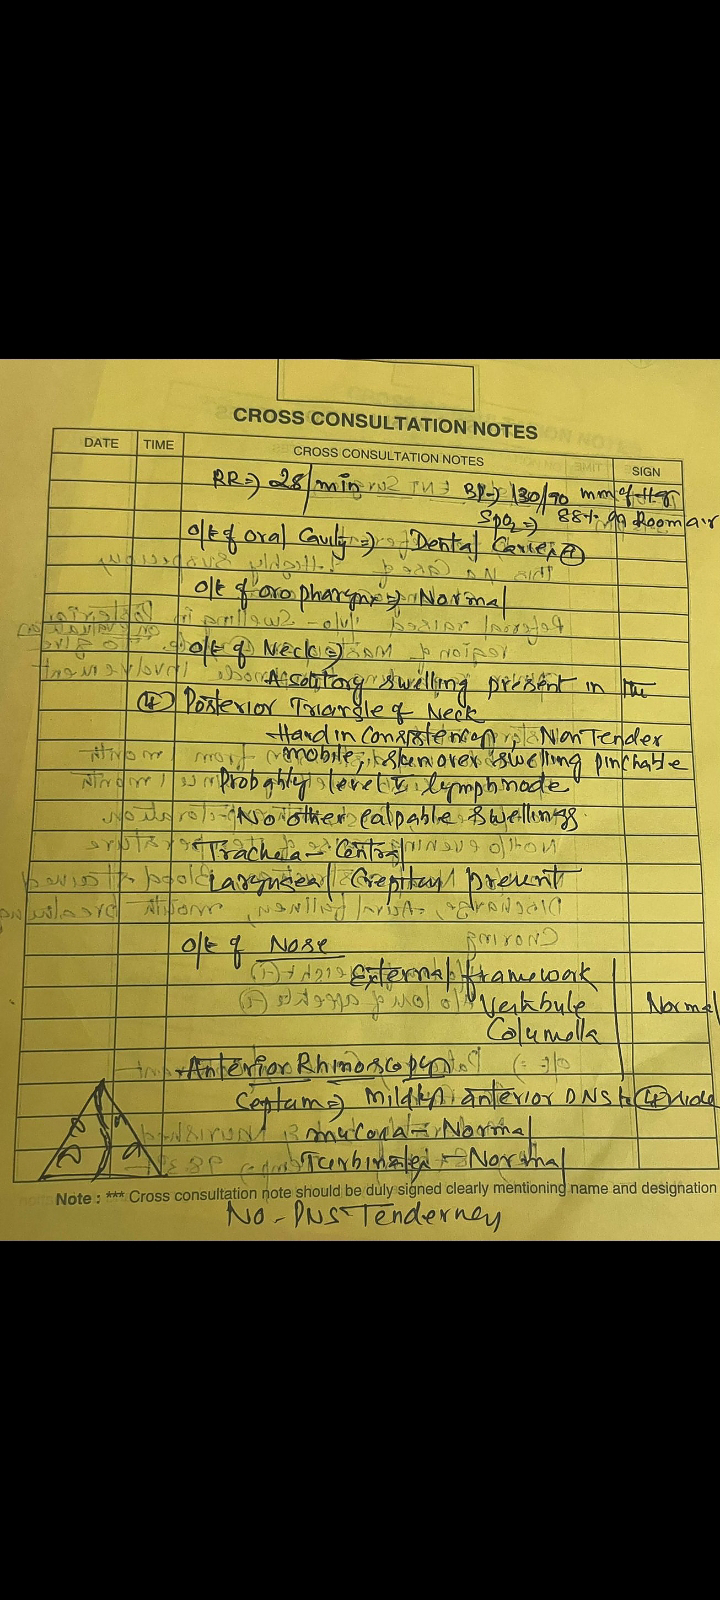 CROSS CONSULTATION NOTES
DATE TIME CROSS CONSULTATION NOTES SIGN
RR => 28/min BP => 130/90 mm of Hg
SpO2 => 88% on Room air
O/E of Oral Cavity => Dental Caries (+)
O/E of oro pharynx => Normal
O/E of Neck =>
A solitary swelling present in the
Posterior Triangle of Neck
Hard in Consistency, Non Tender
mobile, skin over swelling pinchable
Probably level V lymphnode
No other palpable swellings
Trachea - Central
Laryngeal Crepitus present
O/E of Nose
External framework
Vestibule Normal
Columella
Anterior Rhinoscopy
Septum => Mildly anterior DNS to side
mucosa - Normal
Turbinates - Normal
Note : *** Cross consultation note should be duly signed clearly mentioning name and designation
No - PNS - Tenderness